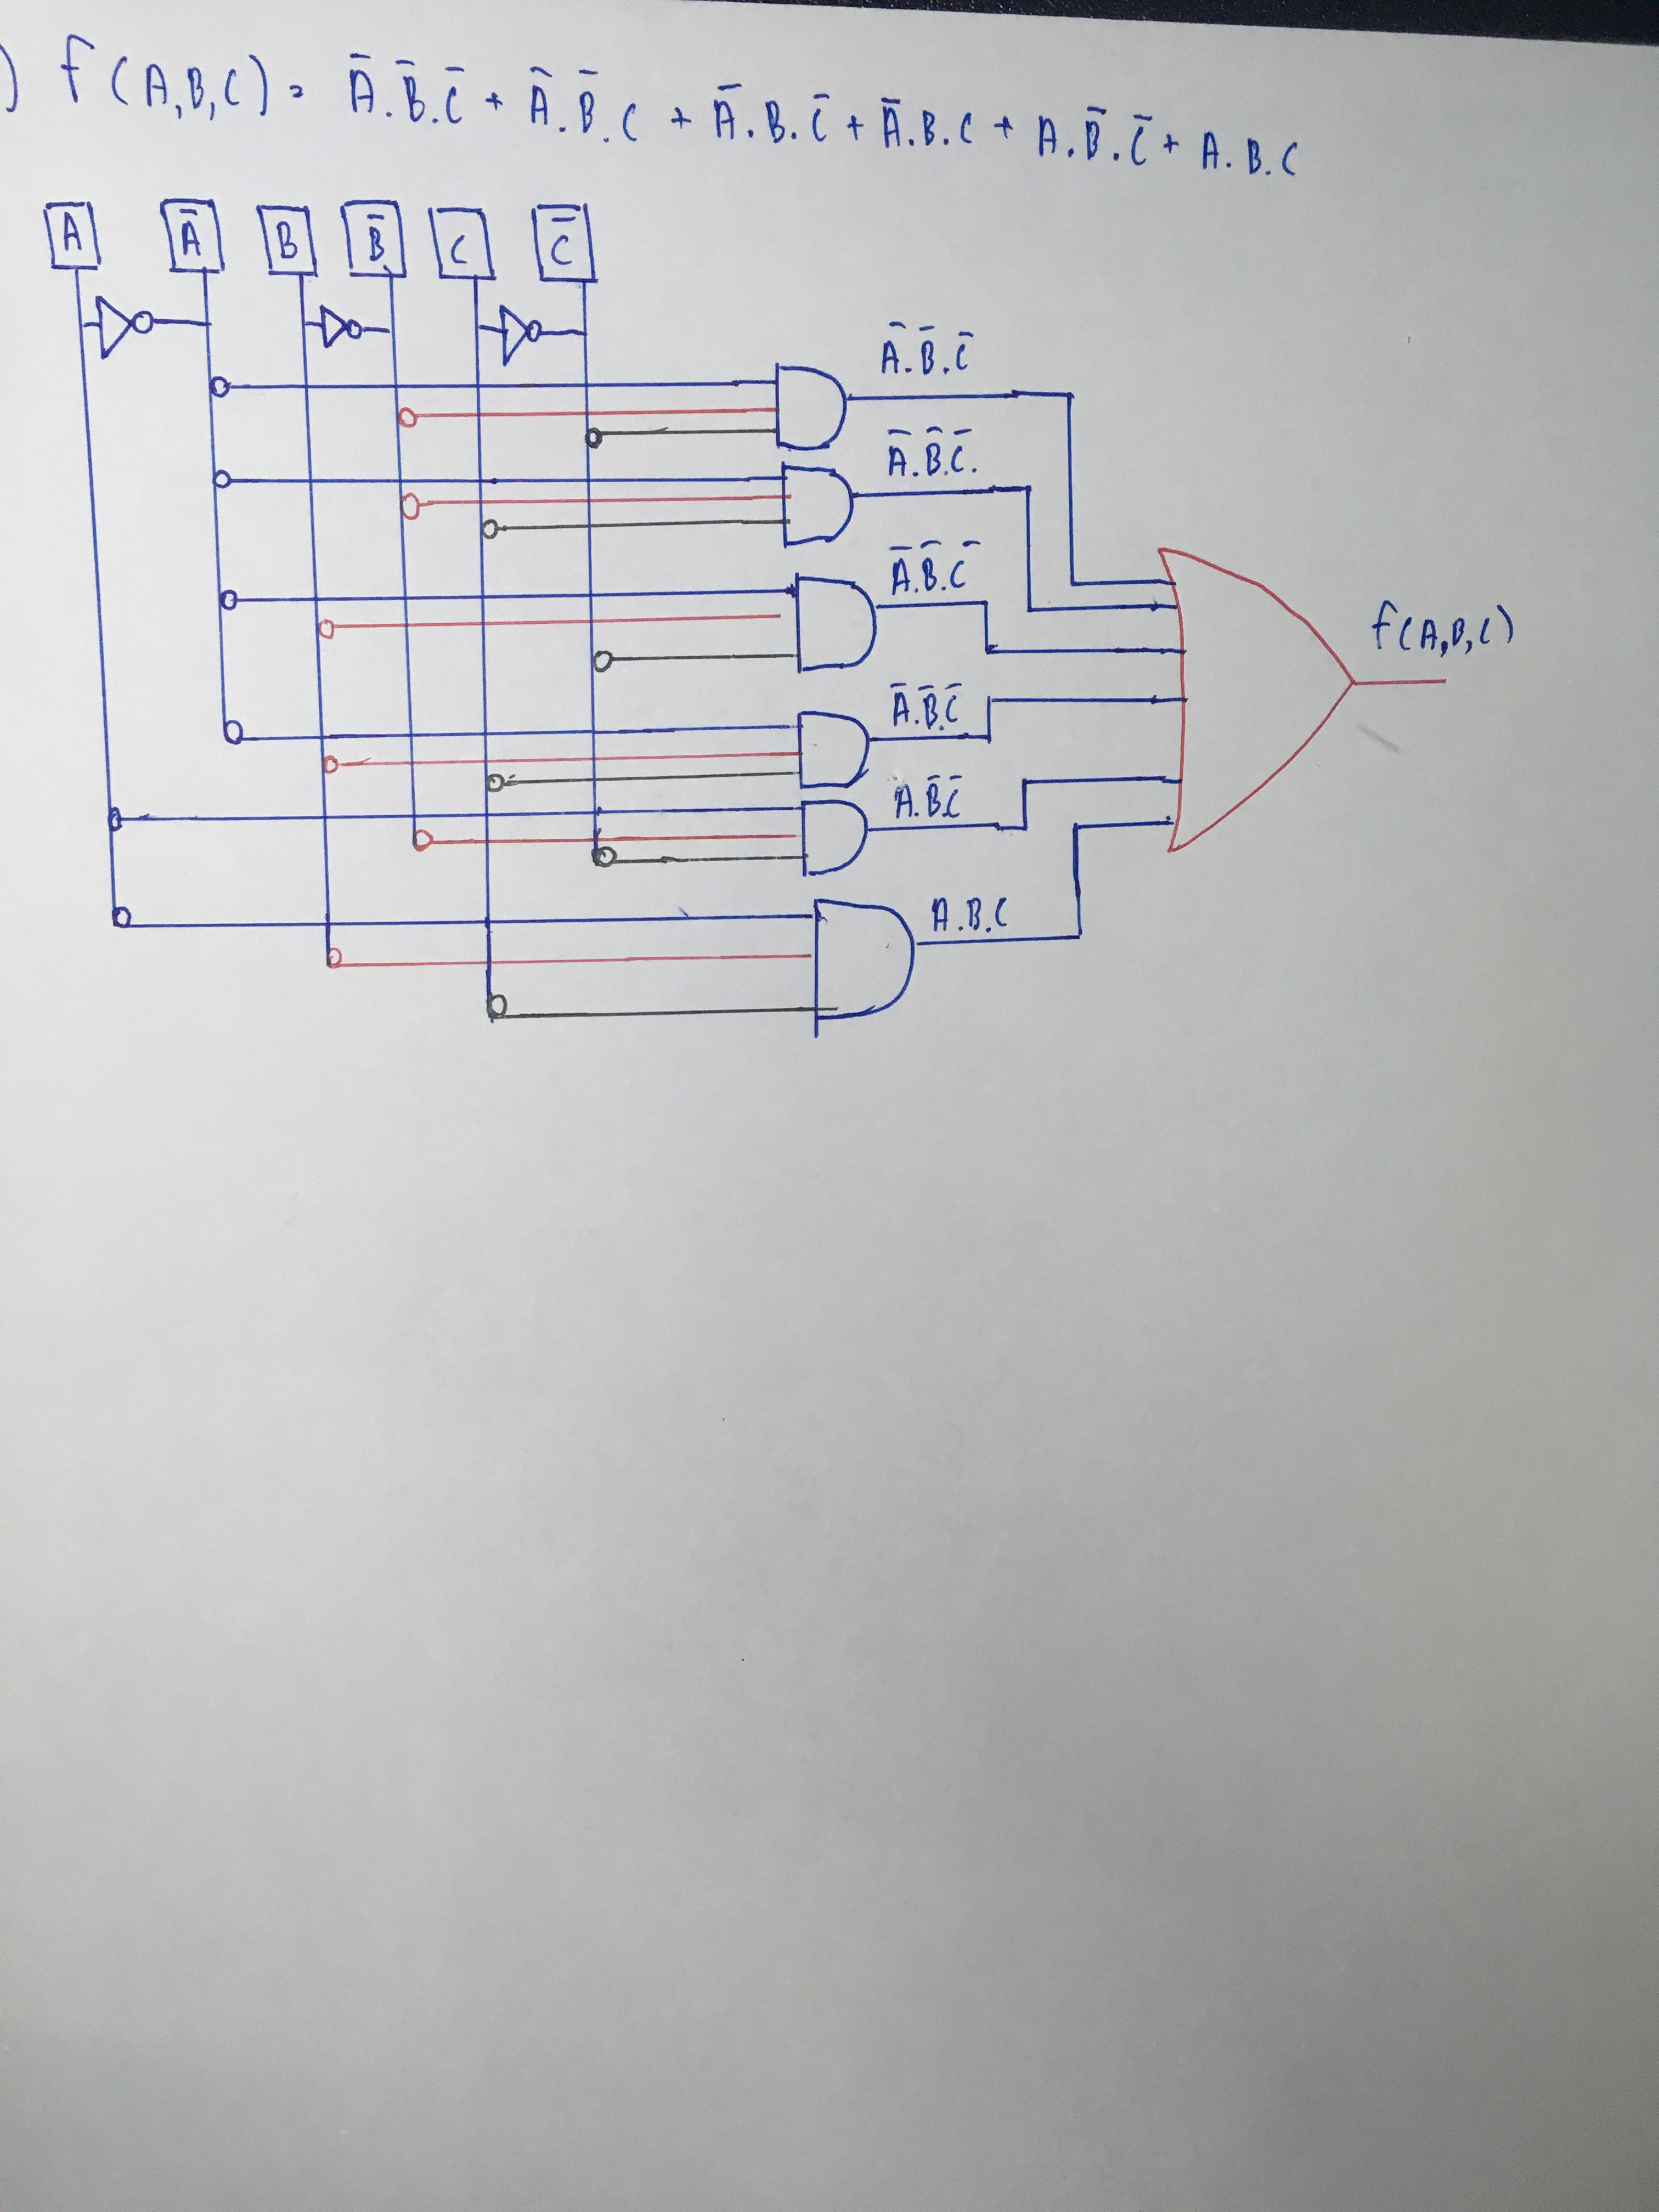 ) f(A,B,C) = A̅.B̅.C̅ + A̅.B̅.C + A̅.B.C̅ + A̅.B.C + A.B̅.C̅ + A.B.C
A A̅ B B̅ C C̅
A̅.B̅.C̅
A̅.B̅.C̅.
A̅.B̅.C̅
f(A,B,C)
A̅.B̅.C̅
A.B̅.C̅
A.B.C